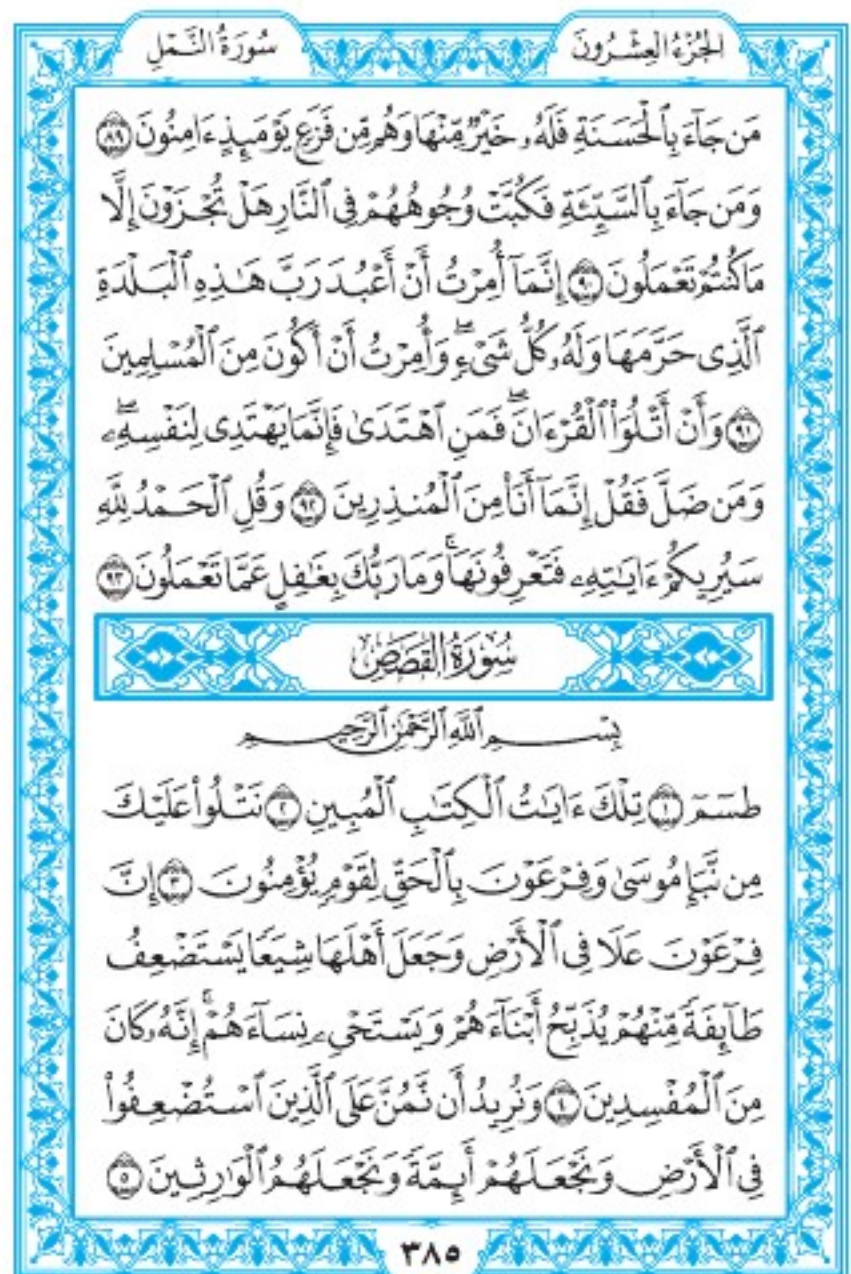 الجُزْءُ العِشْرُونَ
سُورَةُ النَّمْلِ
مَن جَآءَ بِٱلْحَسَنَةِ فَلَهُۥ خَيْرٌ مِّنْهَا وَهُم مِّن فَزَعٍ يَوْمَئِذٍ ءَامِنُونَ ٨٩
وَمَن جَآءَ بِٱلسَّيِّئَةِ فَكُبَّتْ وُجُوهُهُمْ فِى ٱلنَّارِ هَلْ تُجْزَوْنَ إِلَّا
مَا كُنتُمْ تَعْمَلُونَ ٩٠ إِنَّمَآ أُمِرْتُ أَنْ أَعْبُدَ رَبَّ هَٰذِهِ ٱلْبَلْدَةِ
ٱلَّذِى حَرَّمَهَا وَلَهُۥ كُلُّ شَىْءٍ ۖ وَأُمِرْتُ أَنْ أَكُونَ مِنَ ٱلْمُسْلِمِينَ
٩١ وَأَنْ أَتْلُوَا۟ ٱلْقُرْءَانَ ۖ فَمَنِ ٱهْتَدَىٰ فَإِنَّمَا يَهْتَدِى لِنَفْسِهِۦ ۖ
وَمَن ضَلَّ فَقُلْ إِنَّمَآ أَنَا۠ مِنَ ٱلْمُنذِرِينَ ٩٢ وَقُلِ ٱلْحَمْدُ لِلَّهِ
سَيُرِيكُمْ ءَايَٰتِهِۦ فَتَعْرِفُونَهَا ۚ وَمَا رَبُّكَ بِغَٰفِلٍ عَمَّا تَعْمَلُونَ ٩٣
سُورَةُ القَصَصِ
بِسْمِ ٱللَّهِ ٱلرَّحْمَٰنِ ٱلرَّحِيمِ
طسٓمٓ ١ تِلْكَ ءَايَٰتُ ٱلْكِتَٰبِ ٱلْمُبِينِ ٢ نَتْلُوا۟ عَلَيْكَ
مِن نَّبَإِ مُوسَىٰ وَفِرْعَوْنَ بِٱلْحَقِّ لِقَوْمٍ يُؤْمِنُونَ ٣ إِنَّ
فِرْعَوْنَ عَلَا فِى ٱلْأَرْضِ وَجَعَلَ أَهْلَهَا شِيَعًا يَسْتَضْعِفُ
طَآئِفَةً مِّنْهُمْ يُذَبِّحُ أَبْنَآءَهُمْ وَيَسْتَحْىِۦ نِسَآءَهُمْ ۚ إِنَّهُۥ كَانَ
مِنَ ٱلْمُفْسِدِينَ ٤ وَنُرِيدُ أَن نَّمُنَّ عَلَى ٱلَّذِينَ ٱسْتُضْعِفُوا۟
فِى ٱلْأَرْضِ وَنَجْعَلَهُمْ أَئِمَّةً وَنَجْعَلَهُمُ ٱلْوَٰرِثِينَ ٥
٣٨٥